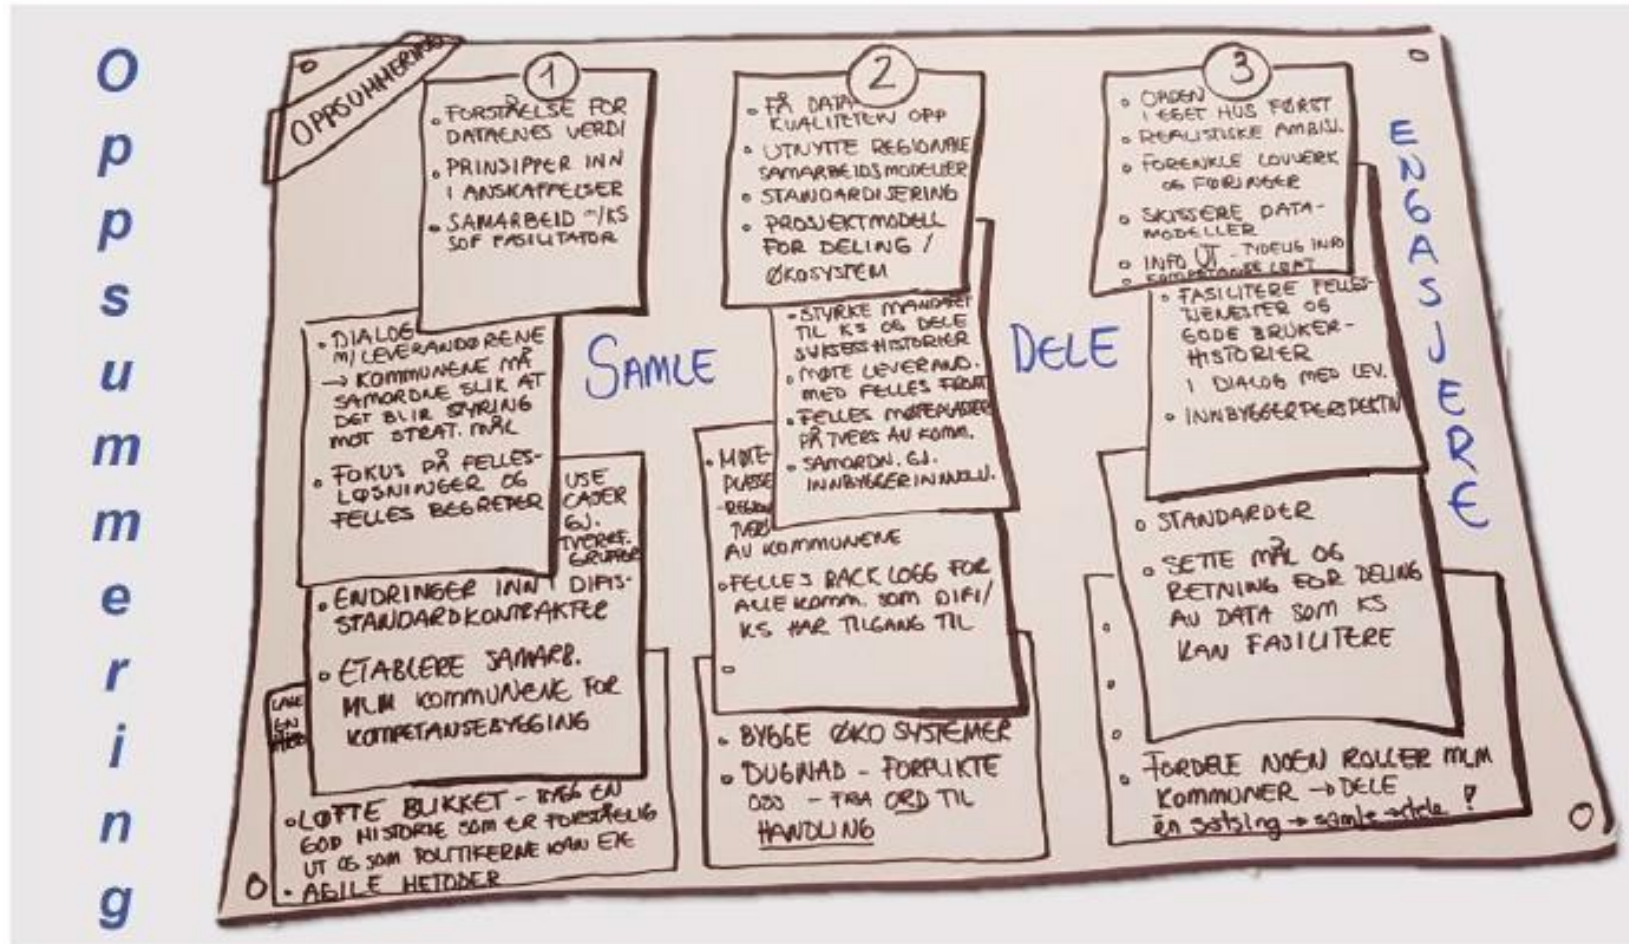 Oppsummering
OPPSUMMERING
1
• FORSTÅELSE FOR
DATAENES VERDI
• PRINSIPPER INN
I ANSKAFFELSER
• SAMARBEID m/KS
SOF FASILITATOR
• DIALOG
M/LEVERANDØRENE
→ KOMMUNENE MÅ
SAMORDNE SLIK AT
DET BLIR STYRING
MOT STRAT. MÅL
• FOKUS PÅ FELLES-
LØSNINGER OG
FELLES BEGREPER
USE
CASER
GJ.
TVERRF.
GRUPPER
• ENDRINGER INN I DIFIS-
STANDARDKONTRAKTER
• ETABLERE SAMARB.
MLM KOMMUNENE FOR
KOMPETANSEBYGGING
LAGE
EN
• LØFTE BLIKKET - BYGG EN
GOD HISTORIE SOM ER FORSTÅELIG
UT OG SOM POLITIKERNE KAN EIE
• AGILE METODER
SAMLE
2
• FÅ DATA-
KVALITETEN OPP
• UTNYTTE REGIONALE
SAMARBEIDSMODELLER
• STANDARDISERING
• PROSJEKTMODELL
FOR DELING /
ØKOSYSTEM
• STYRKE MANDATET
TIL KS OG DELE
SUKSESSHISTORIER
• MØTE LEVERAND.
MED FELLES FRONT
• FELLES MØTEPLASSER
PÅ TVERS AV KOMM.
• SAMORDN. GJ.
INNBYGGERINNVOLV.
• MØTE-
PLASSE
-REGION
TVERS
AV KOMMUNENE
• FELLES BACK LOGG FOR
ALLE KOMM. SOM DIFI/
KS HAR TILGANG TIL
• BYGGE ØKO SYSTEMER
• DUGNAD - FORPLIKTE
OSS - FRA ORD TIL
HANDLING
DELE
3
• ORDEN
I EGET HUS FØRST
• REALISTISKE AMBISJ.
• FORENKLE LOVVERK
OG FØRINGER
• SKISSERE DATA-
MODELLER
• INFO UT - TYDELIG INFO
• KOMPETANSELØFT
• FASILITERE FELLES-
TJENESTER OG
GODE BRUKER-
HISTORIER
I DIALOG MED LEV.
• INNBYGGERPERSPEKTIV
• STANDARDER
• SETTE MÅL OG
RETNING FOR DELING
AV DATA SOM KS
KAN FASILITERE
• FORDELE NOEN ROLLER MLM
KOMMUNER → DELE
én satsing → samle → dele !
ENGASJERE